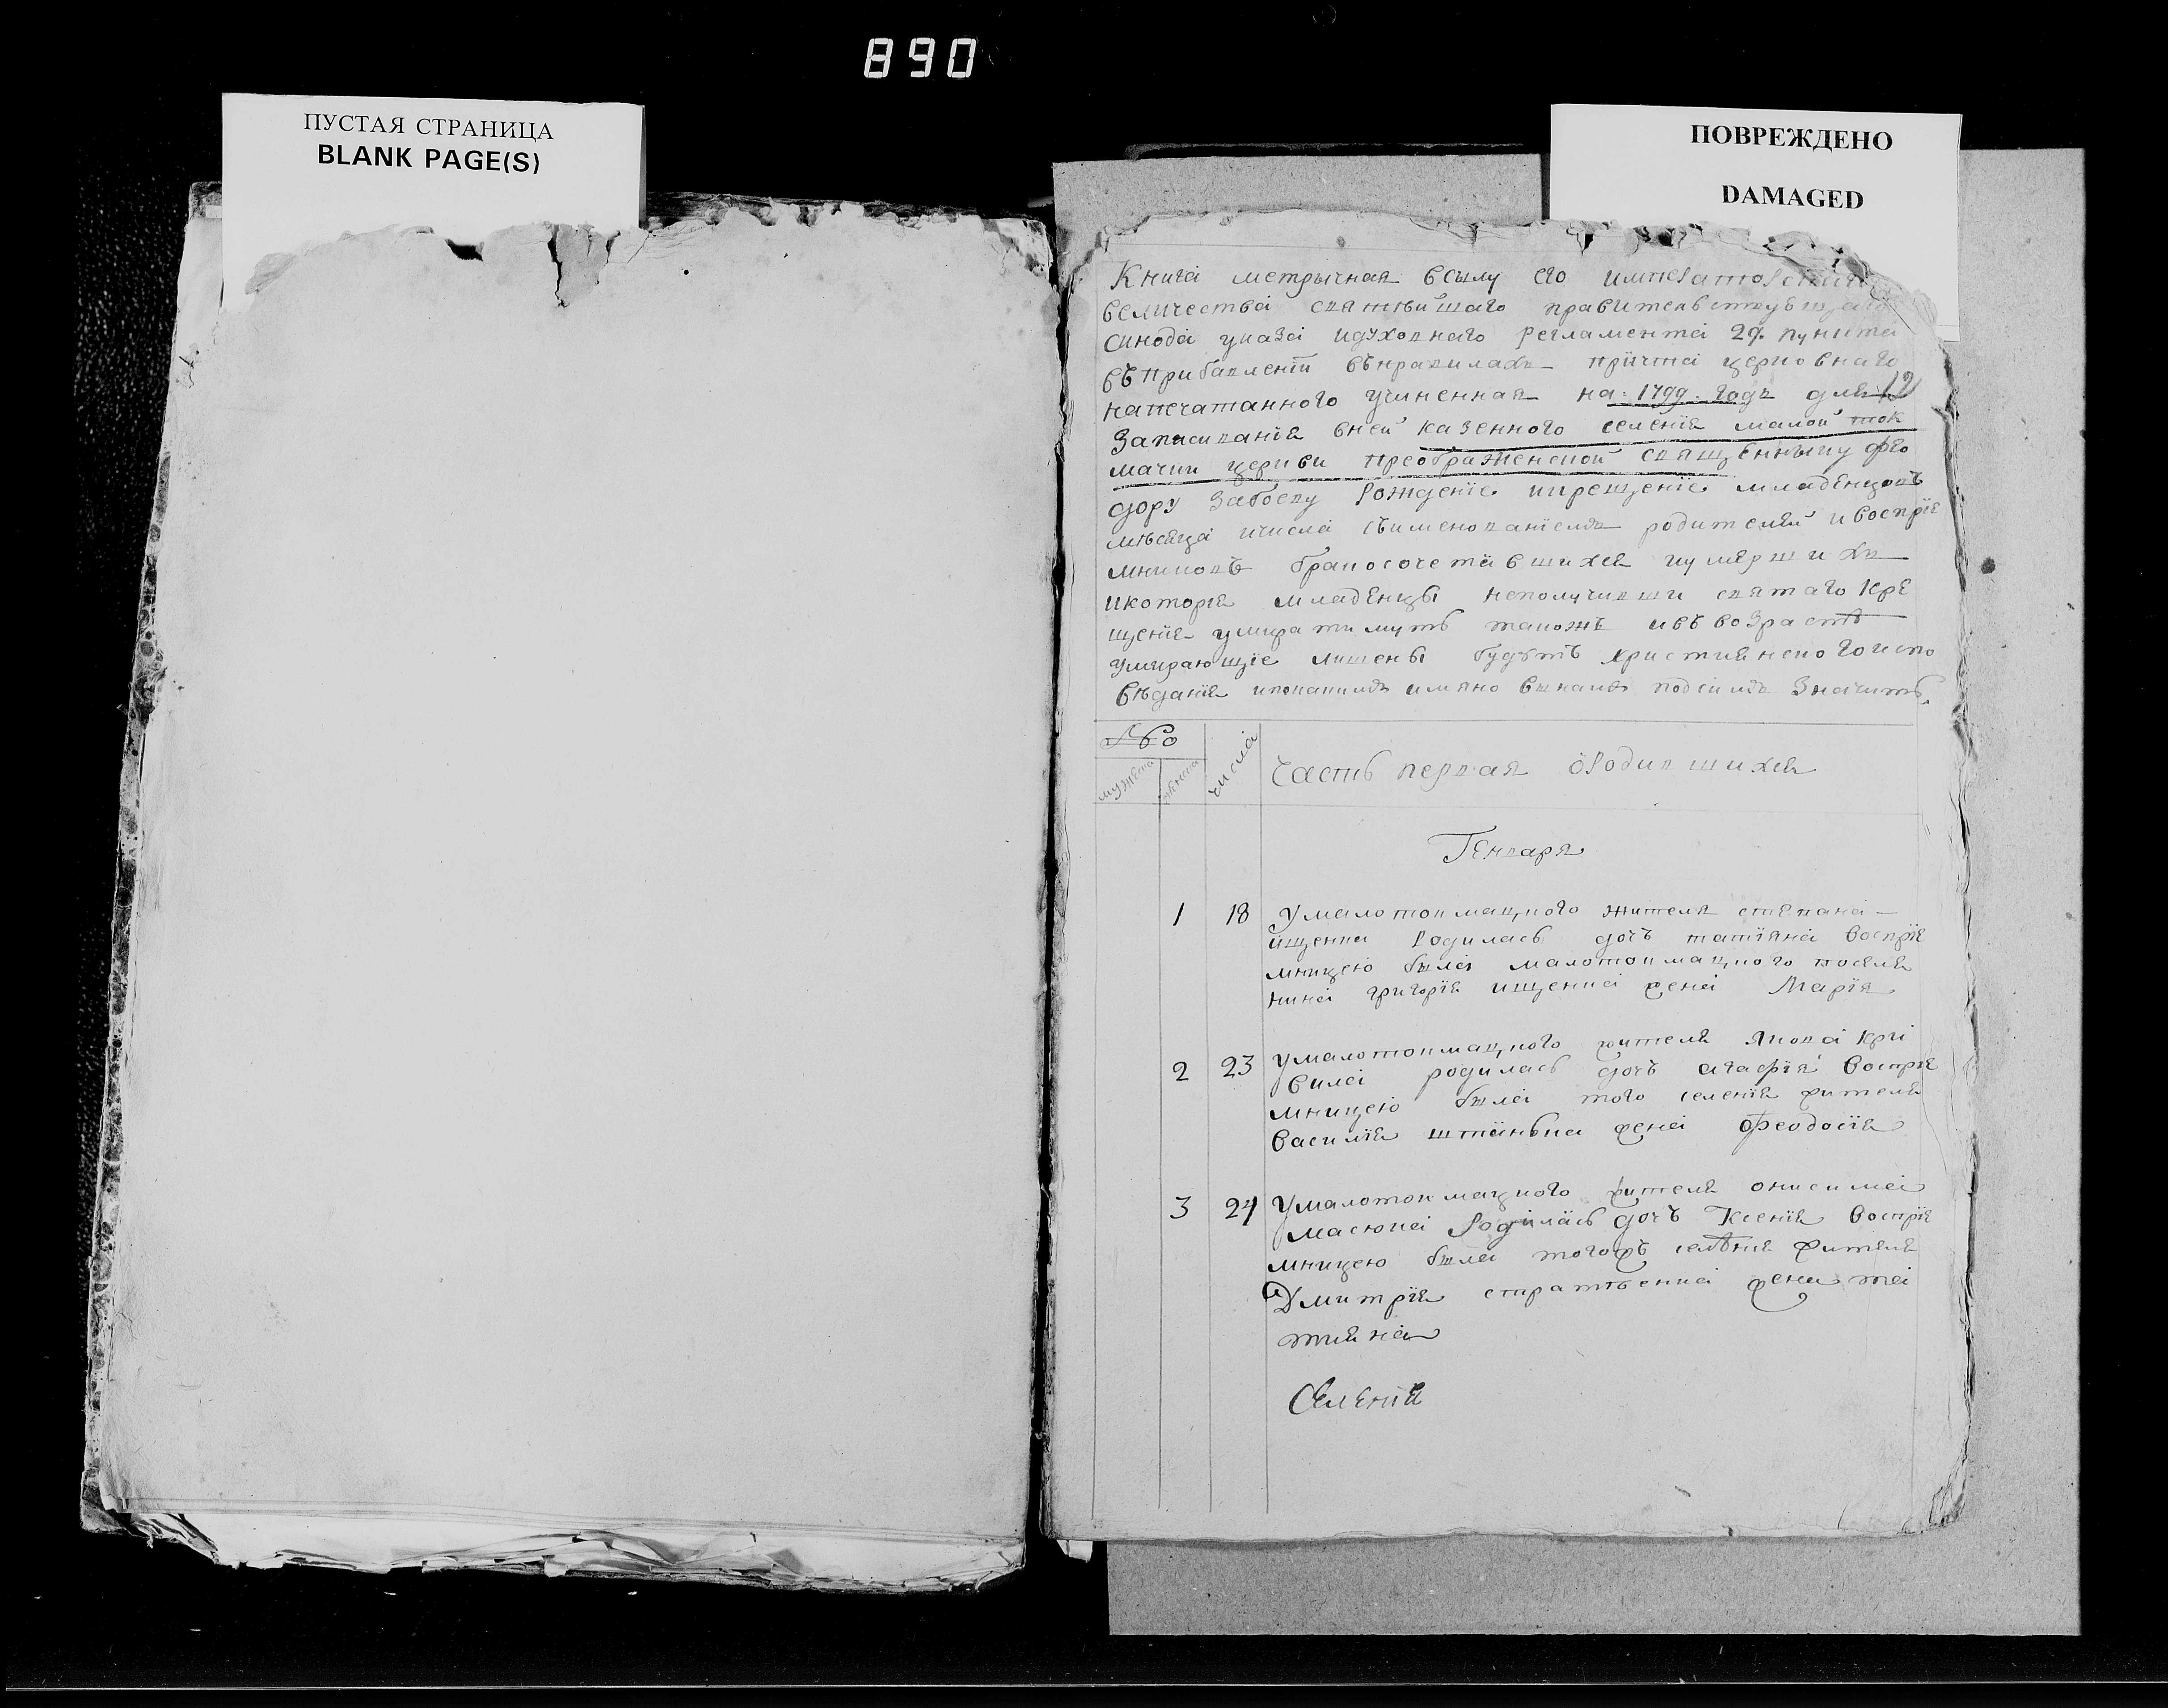 890
ПУСТАЯ СТРАНИЦА
BLANK PAGE(S)
ПОВРЕЖДЕНО
DAMAGED
Книга метрычная всылу его императорскаго
величества святѣйшаго правительствующаго
синода указа идуховнаго регламента 29. пункта
въприбавленіи въправилахъ причта церковнаго
напечатанного учиненная на 1799 годъ для
записиванія вней казенного селенія малой ток
мачки церкви преображенской священныку фео
дору Забоеву рожденіе икрещеніе младенцовъ
мѣсяца ичисла съименованіемъ родителей ивоспріе
мниковъ бракосочетавшихся иумершихъ
икоторіе младенцы неполучивши святаго кре
щенія умирати муть такожъ ивъ возрастѣ
умирающіе лишены будутъ християнского испо
вѣданія ипокаяния имяно вшнами подсимъ значитъ,
№ о
мужеска
женска
числа
Часть первая ородившихся
Генваря
1 18 Умалотокмацкого жителя степана
ищенка родилась дочъ татіяна воспріе
мницею была малотокмацкого поселя
нина григорія ищенка жена Марія
2 23 умалотокмацкого жителя якова кри
вилі родилась дочъ агафія воспріе
мницею была того селенія жителя
василія штанька жена феодосія
3 24 Умалотокмацкого жителя онисима
масюка родилась дочъ Ксенія воспріе
мницею была тогожъ селенія жителя
Дмитрія стратьенка жена та
тияна
Селенія